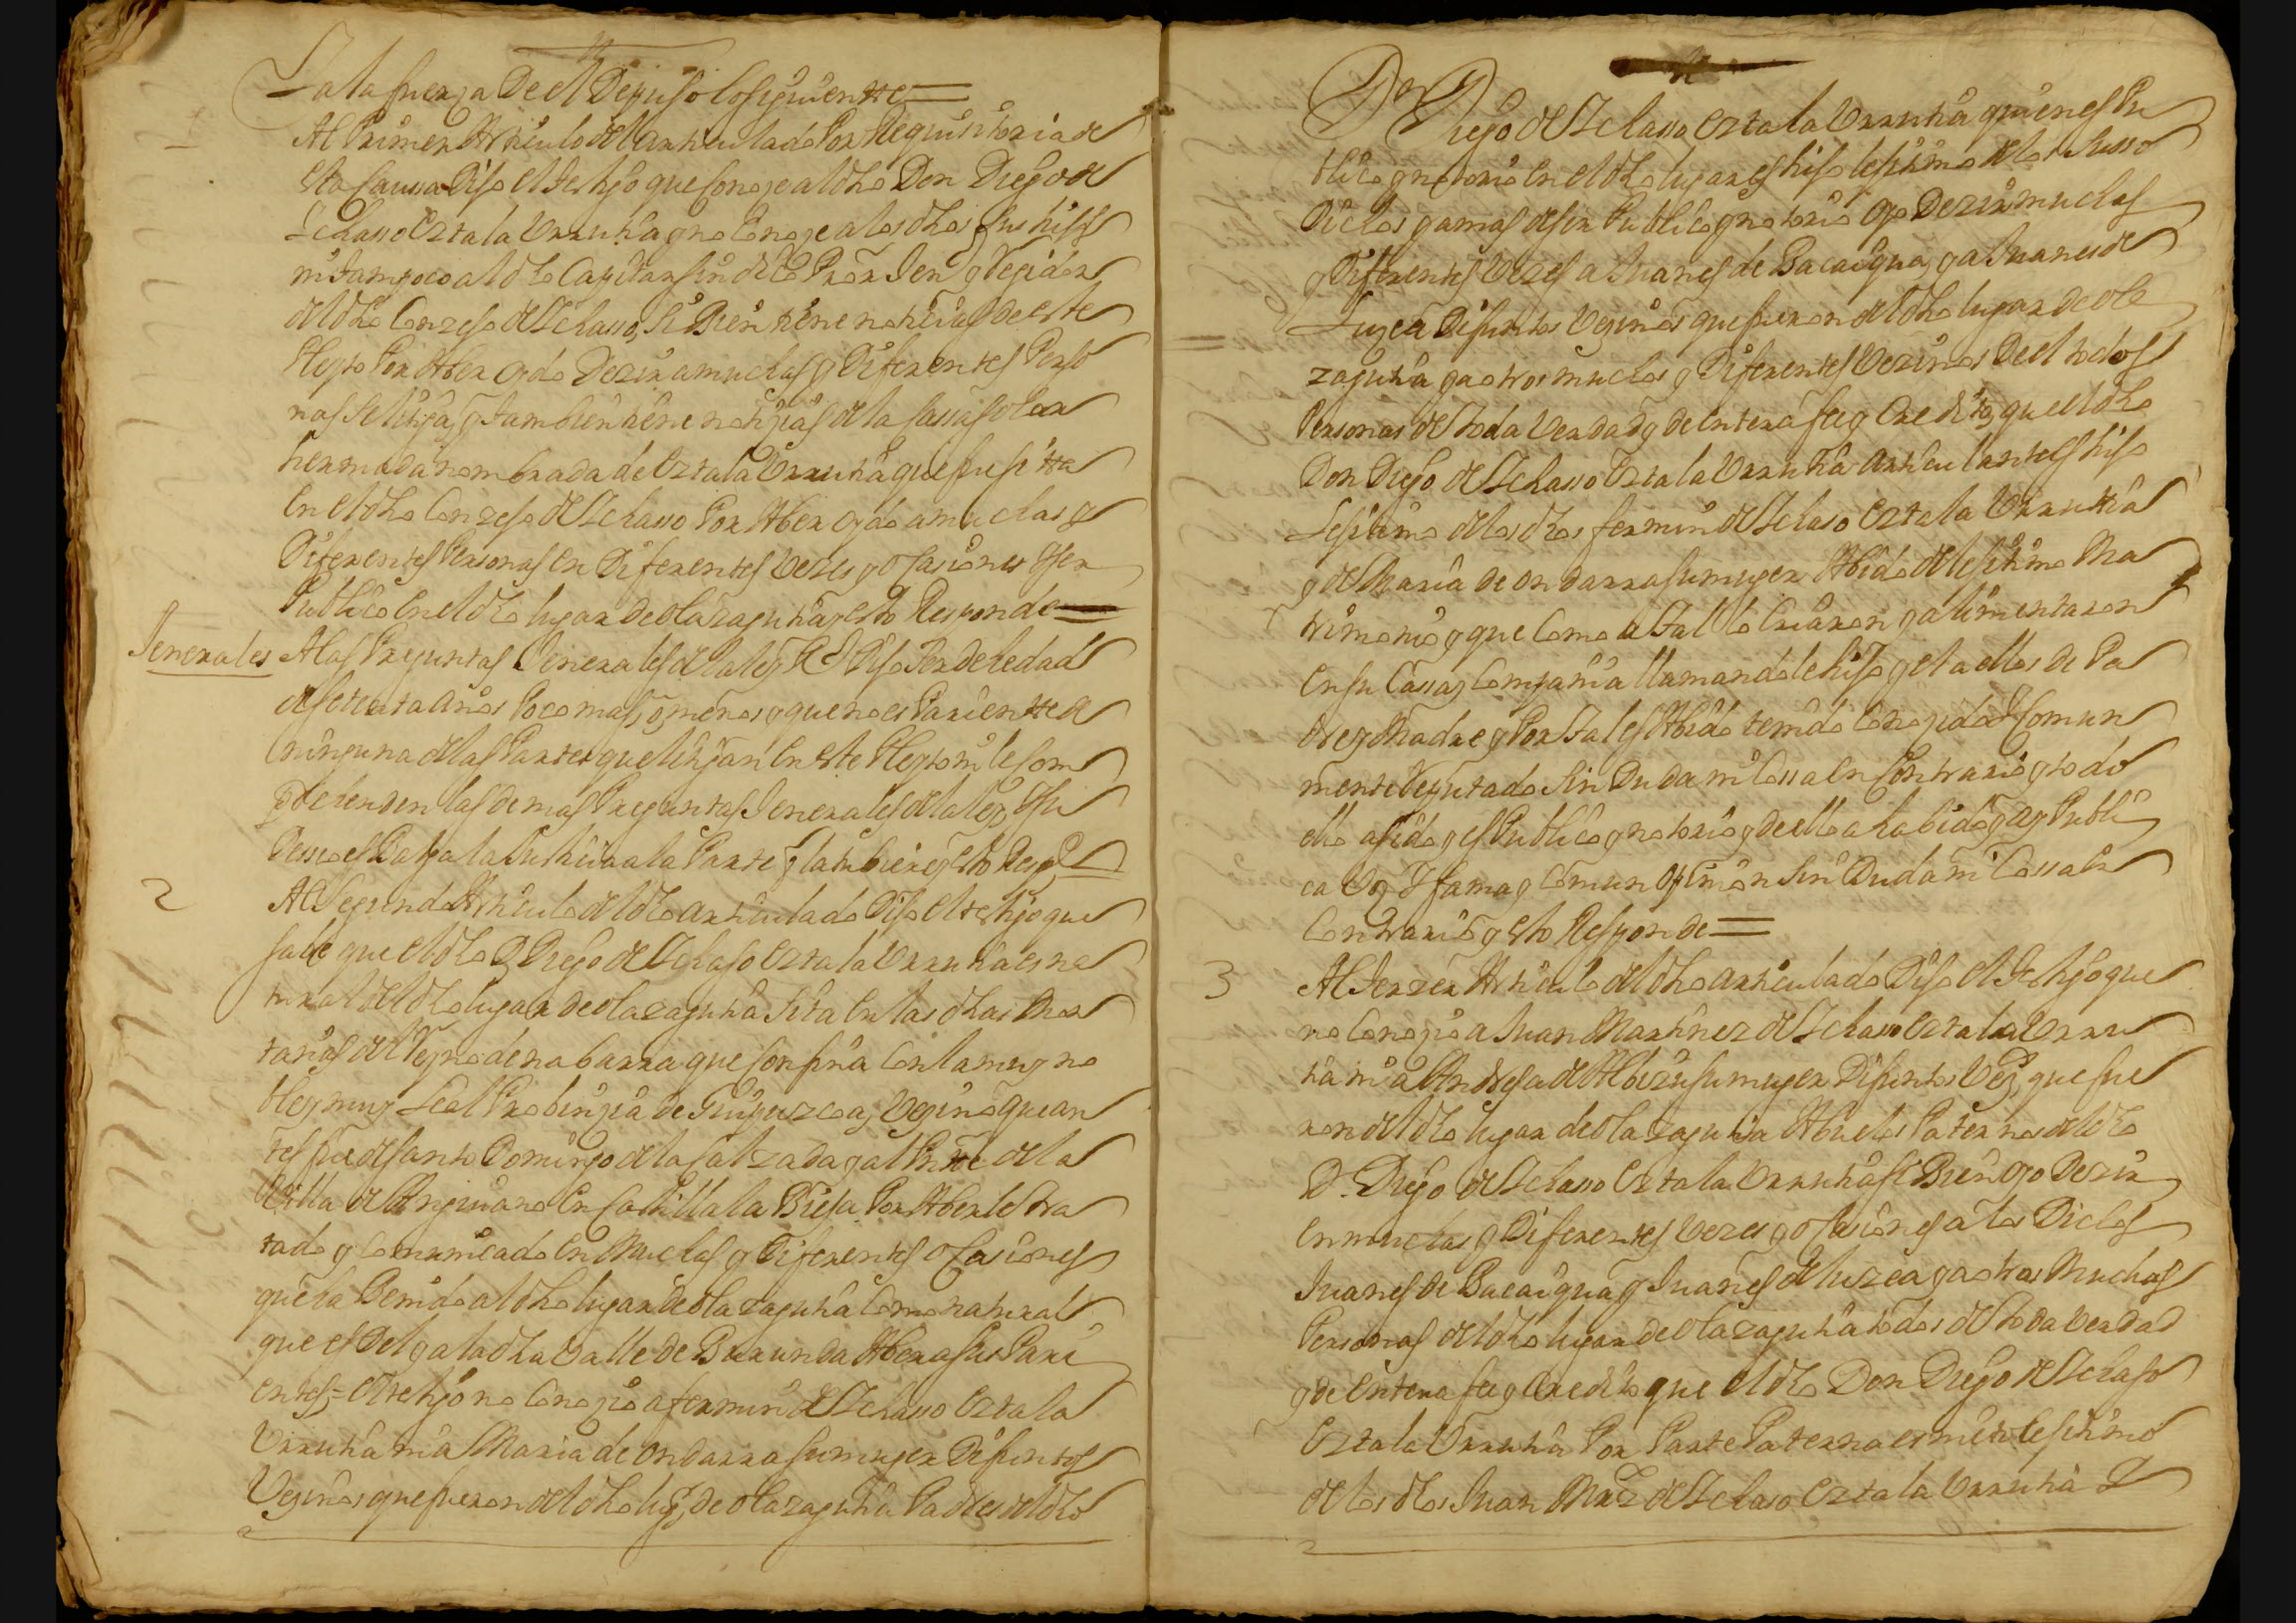 Ya la fuerza de el Depuso lo siguiente=
1
Al Primer Articulo del articulado Por Requisitoria de
esta Caussa Dijo el testigo que Conoze al dho Don Diego de
Ichasso Oztala Urrutia y no Conoze a los dhos sus hijos
ni tampoco al dho Capitan sindico Pror Jen y Regidor
del dho Conzejo de Ichasso, si Bien tiene noticias de este
Pleyto Por Aber oydo Dezir a muchas y Diferentes Perso
nas se litiga, y tambien tiene notizias de la Cassa solar
nombrada de Oztala Urrutia que su sita
en el dho Conzejo de Ichasso Por Aber oydo a muchas y
Diferentes Personas en Diferentes Vezes y ocasiones y ser
Publico en el dho lugar de olazagutia, esto Responde=
Jenerales
A las Preguntas Jenerales de la ley Dijo Ser de hedad
de setenta años Poco mas, o menos y que no es Pariente a
ninguna de las Partes que litigan en este Pleyto ni le Com
prehenden las demas Preguntas Jenerales de la ley, y su
Deseo es Balga la Justicia a la Parte q la tubiere y esto Respde
2
Al Segundo Articulo del dho articulado Dijo el testigo que
sabe que el dho D. Diego de Ichaso Oztala Urrutia es na
tural del dho lugar de olazagutia sita en las dhas Mon
tañas del Reyno de nabarra que Confina Con la muy no
ble y muy Leal Probinzia de Guipuzcoa, Vezino que an
tes fue de santo Domingo de la Calzada y al Pnte de la
Villa de Anguiano en Castilla la Bieja Por Aberle tra
tado y Comunicado en Muchas y Diferentes ocasiones
que ha Benido al dho lugar de olazagutia Como natural
que es Del y a la dha Valle de Burunda A ber a sus Pari
entes= el testigo no Conozio a fermin de Ichasso Oztala
Urrutia ni a Maria de ondarra su muger Difuntos
Vezinos que fueron del dho lugr de olazagutia Padres del dho
Dn Diego de Ichasso Oztala Urrutia quien es Pu
blico y notorio en el dho lugar es hijo lejitimo de los susso
Dichos y a mas de ser Publico y notorio oyo Dezir muchas
y Diferentes Vezes a Juanes de Bacaiqua, y a Juanes de
Luzea Difuntos Vezinos que fueron del dho lugar de ola
zagutia y a otros muchos y Diferentes Vezinos De el todos
Personas de toda Verdad y de entera fee y Credito, que el dho
Don Diego de Ichasso Oztala Urrutia Articulante es hijo
Lejitimo de los dhos fermin de Ichaso Oztala Urrutia
y de Maria de ondarra su muger Abido de lejitimo Ma
trimonio y que Como a tal lo Criaron y alimentaron
en su Cassa, y Compania llamandole hijo y el a ellos de Pa
dre y Madre y Por tal es Abido tenido Conozido y Comun
mente Reputado sin Duda ni Cossa en Contrario y todo
ello a sido y es Publico y notorio y de ello a habido y ay Publi
ca Voz y fama y Comun opinion sin Duda ni Cossa en
Contrario y esto Responde=
3
Al Terzer Articulo del dho articulado Dijo el testigo que
no Conozio a Juan Martinez de Ichasso Oztala Urru
tia ni a Andresa de Albizu su muger Difuntos Vezs, que fue
ron del dho lugar de olazagutia Abuelos Paternos del dho
D. Diego de Ichasso Oztala Urrutia si Bien oyo Dezir
en muchas y Diferentes Vezes y ocasiones a los Dichos
Juanes de Bacaiqua y Juanes de luzea y a otras Muchas
Personas del dho lugar de olazagutia todos de toda Verdad
y de entera fee y Credito que el dho Don Diego de Ichaso
Oztala Urrutia Por Parte Paterna es nieto lejitimo
de los dhos Juan Mrz de Ichaso Oztala Urrutia